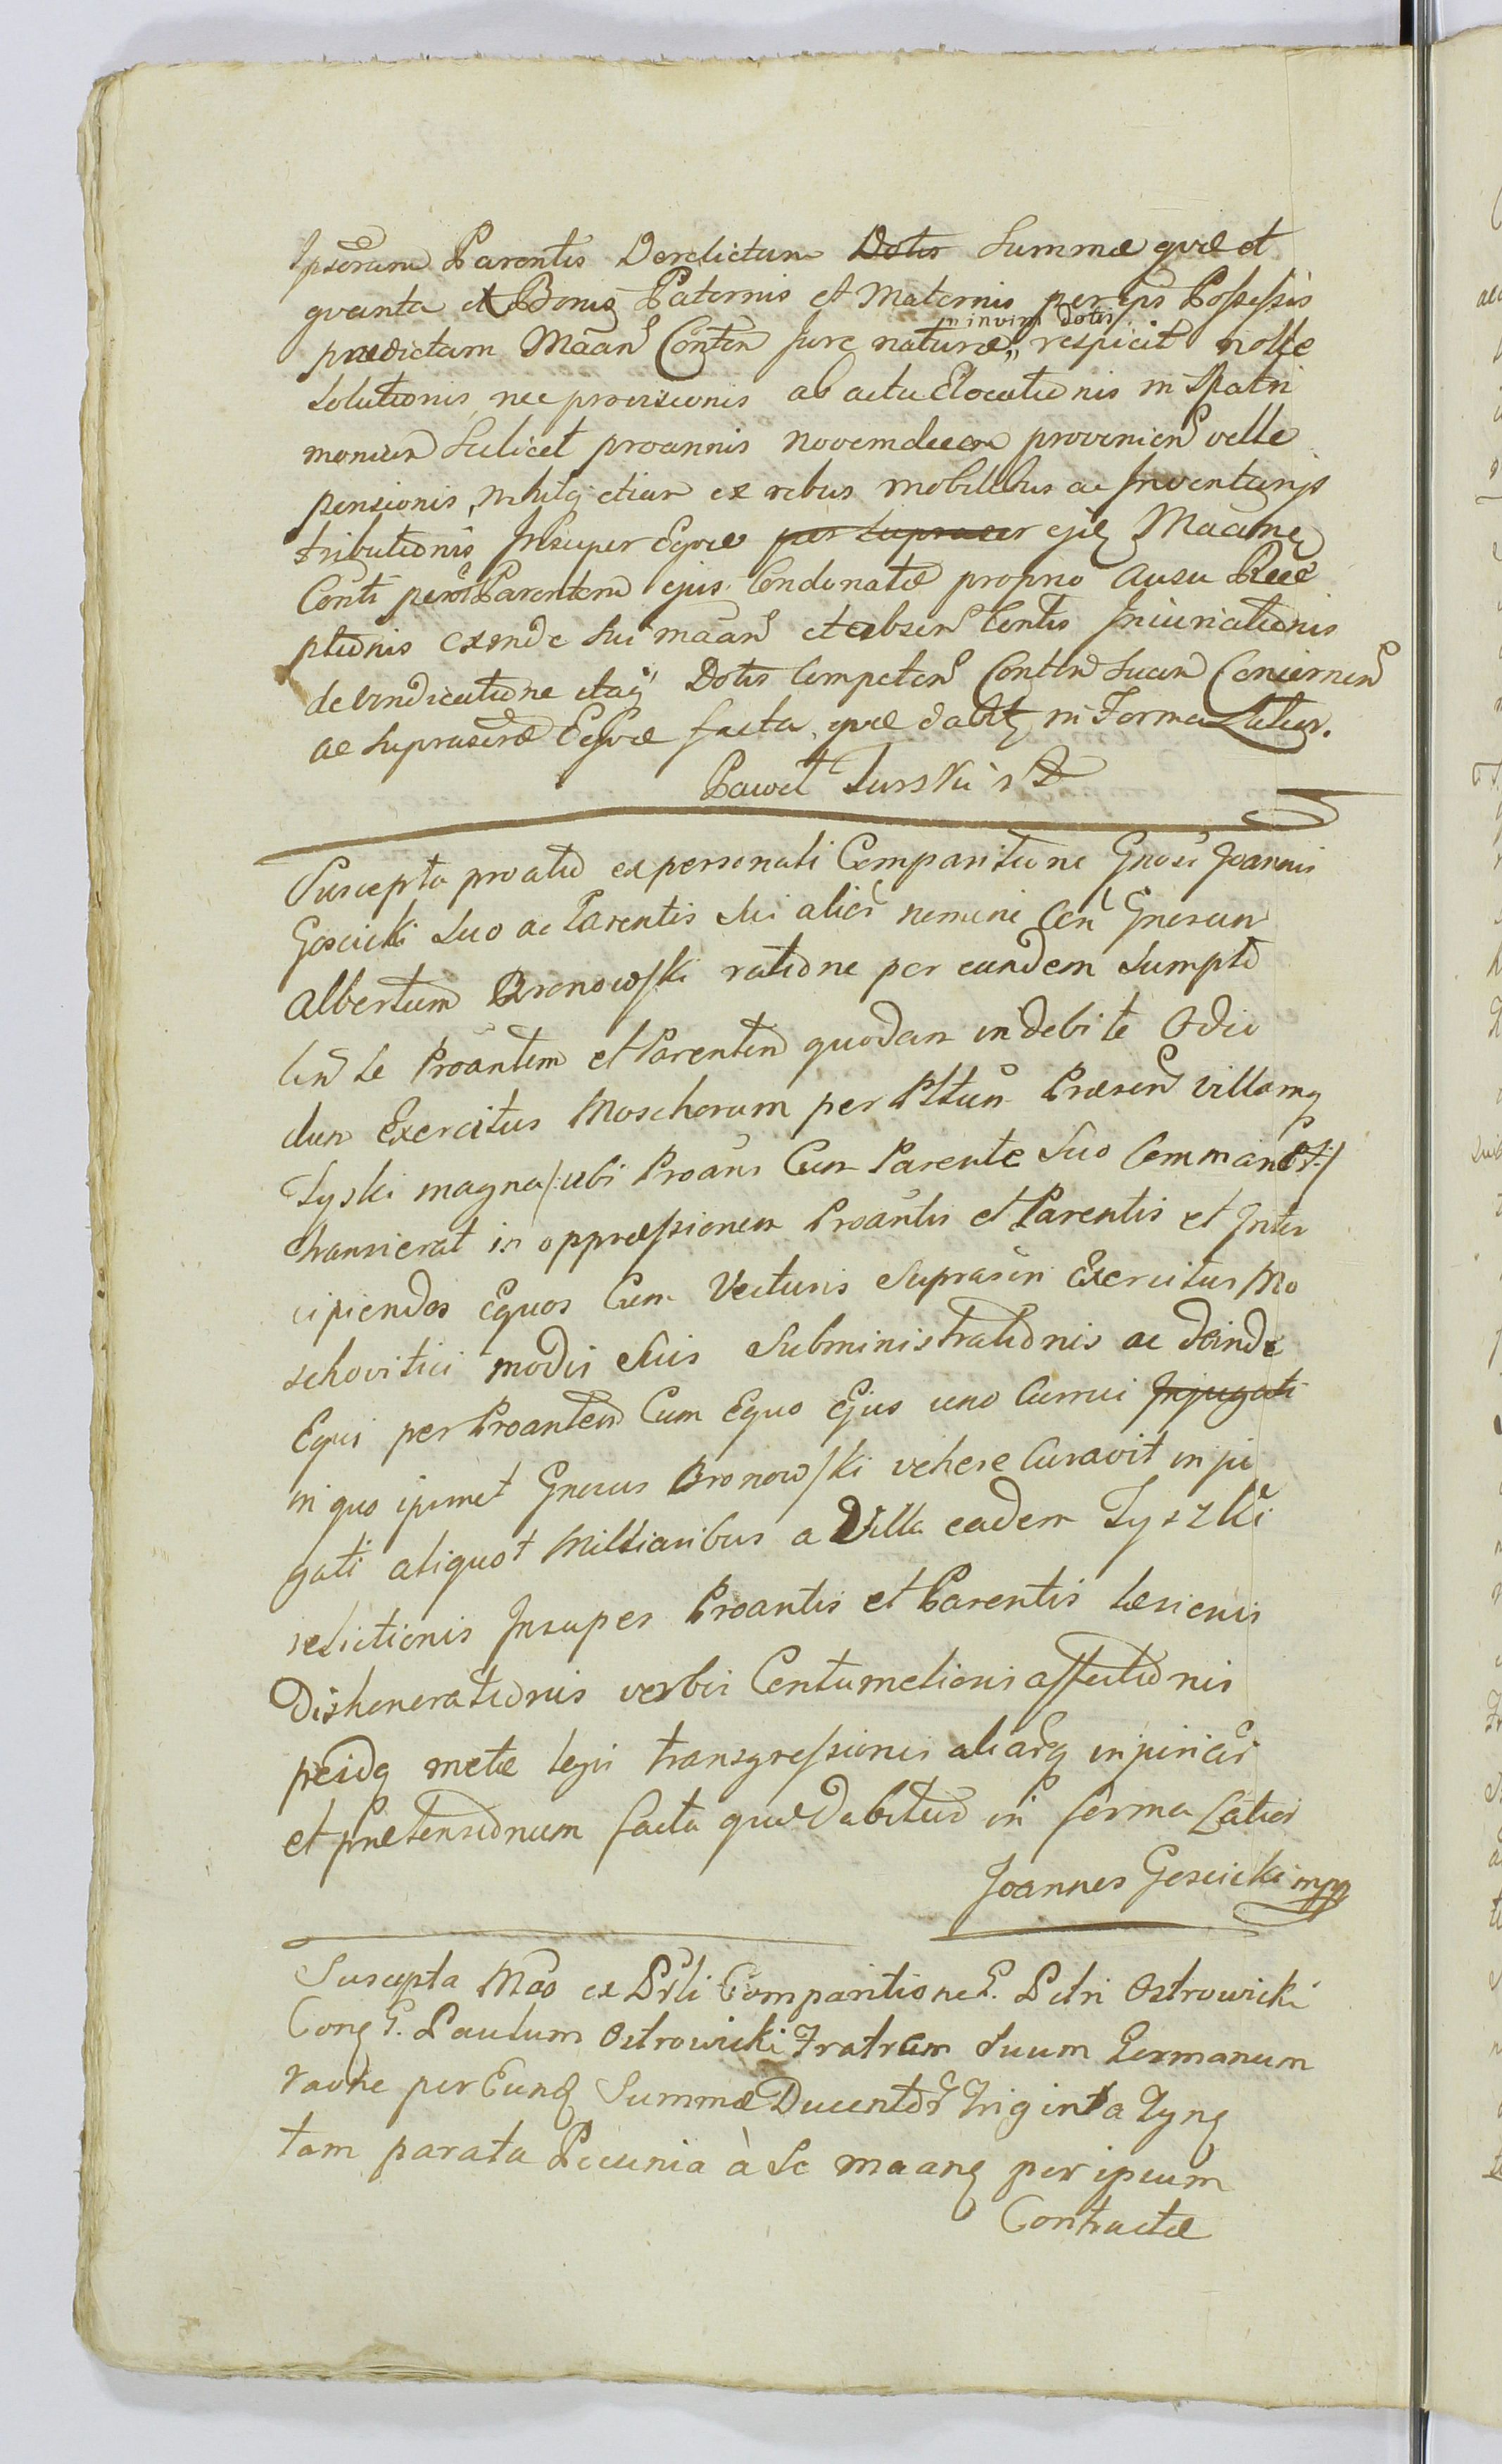 Ipsorum Parentis Derelictum Dotis Summæ qvæ et
qvanta ex Bonis Paternis et Maternis per ips Possessis
prædictam Maan Conten Jure naturæ in vim dotis respicit nolle
Solutionis nec provisionis ab actu Elocutionis in Matri
monium Scilicet pro annis novemdecem provenien velle
pensionis, nihilq etiam ex rebus mobilibus ac Inventarijs
tributionis Insuper Eqvæ per suprascr ejq Maane
Conti per Parentem ejus Condonatæ proprio ausu Rece
ptionis exinde Sui maan et absen Contis Iniuriationis
de vindicatione itaq Dotis Competen Conten Suam Concernen
ac Suprascræ Eqvæ facta, qvæ dabitq in Forma Latior.
Paweł Turski
Suscepta protto ex personali Comparitione Gnosi Joannis
Goscicki Suo ac Parentis Sui alior nemine Con Gnerum
Albertum Bronowski ratione per eundem Sumpto
Con Se Proantem et Parentem quodam indebite Odio
dum Exercitus Moschorum per Pttum Præsen villamq
Tyski magna /:ubi Proans Cum Parente Suo Comman:/
transierat in oppræssionem Proantis et Parentis et Inter
cipiendos Equos Cum Vecturis Suprascri Exercitus Mo
schovitici modis Suis Subministrationis ac deinde
Equi per Proantem Cum Equo Ejus uno Currui Injugati
in quo ipsimet Gnerus Bronowski vehere Curavit inju
gati aliquot Milliaribus a Villa eadem Tyszki
relictionis Insuper Proantis et Parentis læsionis
Dishonerationis verbis Contumeliosis affectionis
peidq metæ legis transgressionis aliarq injuriar
et prætensionum facta quæ dabitur in forma Latiori
Joannes Goscicki mpp
Suscepta Mao ex Prli Comparitione G. Petri Ostrowicki
Conq G. Paulum Ostrowicki Fratrem Suum Germanum
raone per Eunq Summæ Ducentor Triginta Tynq
tam parata Pecunia à Se maanq per ipsum
Contractæ